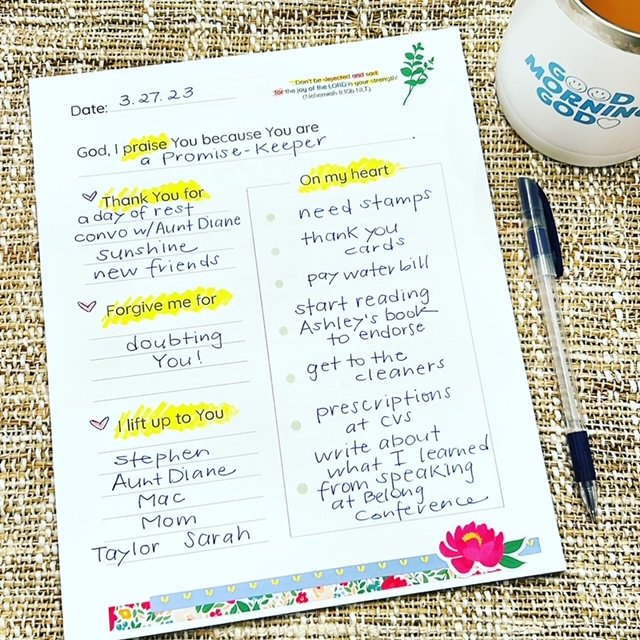 Date: 3.27.23
"Don't be dejected and sad,
for the joy of the LORD is your strength!"
(Nehemiah 8:10b NLT)
God, I praise You because You are
a Promise-Keeper.
Thank You for
a day of rest
convo w/Aunt Diane
sunshine
new friends
Forgive me for
doubting
You!
I lift up to You
Stephen
Aunt Diane
Mac
Mom
Taylor Sarah
On my heart
need stamps
thank you
cards
pay water bill
start reading
Ashley's book
to endorse
get to the
cleaners
prescriptions
at CVS
write about
what I learned
from speaking
at Belong
Conference
GOOD
MORNING
GOD